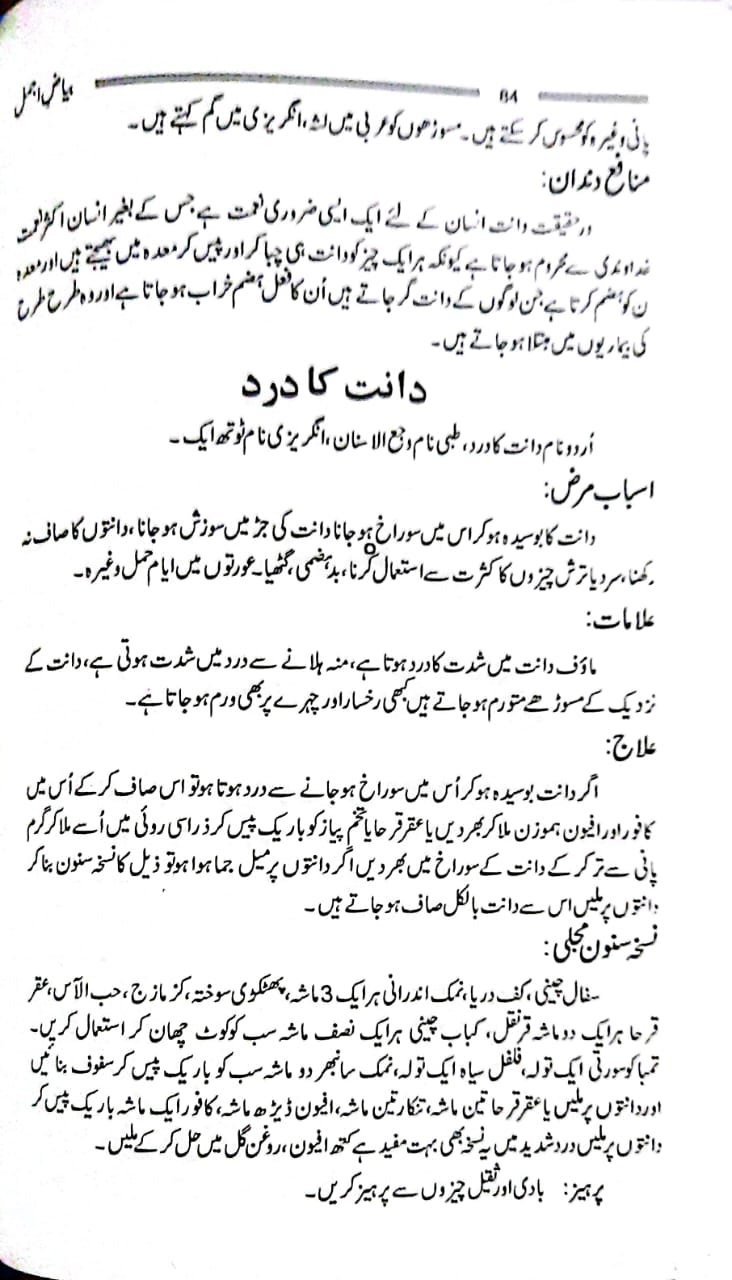 بیاض اجمل ۶۸
پانی وغیرہ کو محسوس کر سکتے ہیں۔ مسوڑھوں کو عربی میں لثہ، انگریزی میں گم کہتے ہیں۔
منافع دندان:
درحقیقت دانت انسان کے لئے ایک ایسی ضروری نعمت ہے جس کے بغیر انسان اکثر نعمت
خداوندی سے محروم ہو جاتا ہے کیونکہ ہر ایک چیز کو دانت ہی چبا کر اور پیس کر معدہ میں بھیجتے ہیں اور معدہ
ن کو ہضم کرتا ہے جن لوگوں کے دانت گر جاتے ہیں اُن کا فعل ہضم خراب ہو جاتا ہے اور وہ طرح طرح
کی بیماریوں میں مبتلا ہو جاتے ہیں۔
دانت کا درد
اُردو نام دانت کا درد، طبی نام وجع الاسنان، انگریزی نام ٹوتھ ایک۔
اسباب مرض:
دانت کا بوسیدہ ہو کر اس میں سوراخ ہو جانا دانت کی جڑ میں سوزش ہو جانا، دانتوں کا صاف نہ
رکھنا، سرد یا ترش چیزوں کا کثرت سے استعمال کرنا، بدہضمی، گٹھیا۔ عورتوں میں ایام حمل وغیرہ۔
علامات:
ماؤف دانت میں شدت کا درد ہوتا ہے، منہ ہلانے سے درد میں شدت ہوتی ہے، دانت کے
نزدیک کے مسوڑھے متورم ہو جاتے ہیں کبھی رخسار اور چہرے پر بھی ورم ہو جاتا ہے۔
علاج:
اگر دانت بوسیدہ ہو کر اُس میں سوراخ ہو جانے سے درد ہوتا ہو تو اس صاف کر کے اُس میں
کافور اور افیون ہموزن ملا کر بھر دیں یا عقر قرحا یا تخم پیاز کو باریک پیس کر ذرا سی روئی میں اُسے ملا کر گرم
پانی سے تر کر کے دانت کے سوراخ میں بھر دیں اگر دانتوں پر میل جما ہوا ہو تو ذیل کا نسخہ سنون بنا کر
دانتوں پر ملیں اس سے دانت بالکل صاف ہو جاتے ہیں۔
نسخہ سنون مجلی:
سفال چینی، کف دریا، نمک اندرانی ہر ایک 3 ماشہ، پھٹکڑی سوختہ، کزمازج، حب الآس، عقر
قرحا ہر ایک دو ماشہ قرنفل، کباب چینی ہر ایک نصف ماشہ سب کو کوٹ چھان کر استعمال کریں۔
تمباکو سورتی ایک تولہ، فلفل سیاہ ایک تولہ، نمک سانبھر دو ماشہ سب کو باریک پیس کر سفوف بنائیں
اور دانتوں پر ملیں یا عقر قرحا تین ماشہ، تنکار تین ماشہ، افیون ڈیڑھ ماشہ، کافور ایک ماشہ باریک پیس کر
دانتوں پر ملیں درد شدید میں یہ نسخہ بھی بہت مفید ہے کتھ افیون، روغن گل میں حل کر کے ملیں۔
پرہیز: بادی اور ثقیل چیزوں سے پرہیز کریں۔